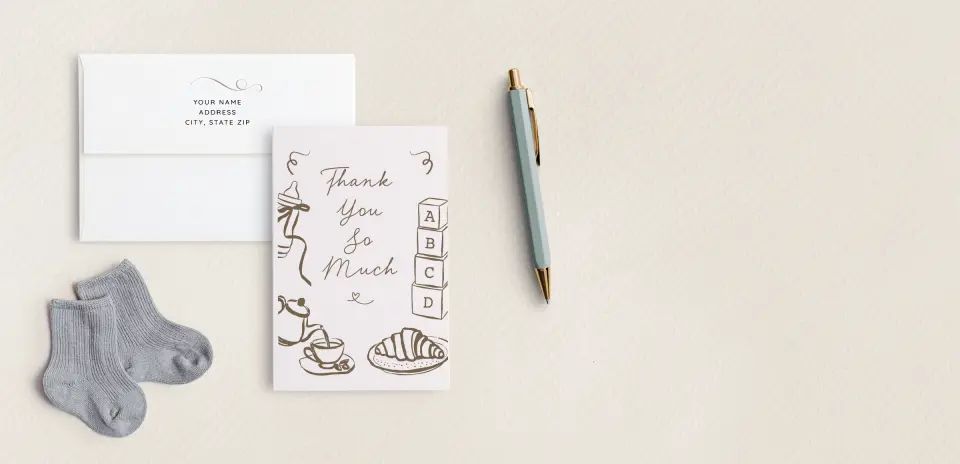 YOUR NAME
ADDRESS
CITY, STATE ZIP
Thank
You
So
Much
A
B
C
D